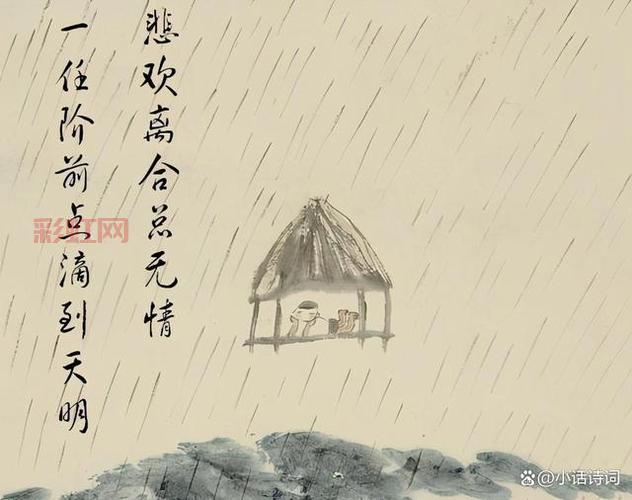 悲欢离合总无情
一任阶前点滴到天明
彩虹网
@小话诗词